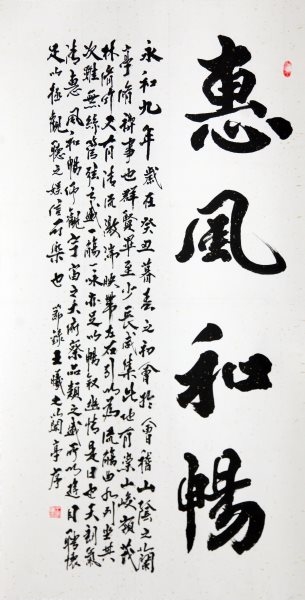 惠風和暢
永和九年歲在癸丑暮春之初會於會稽山陰之蘭
亭脩禊事也群賢畢至少長咸集此地有崇山峻領茂
林脩竹又有清流激湍映帶左右引以為流觴曲水列坐其
次雖無絲竹管弦之盛一觴一詠亦足以暢敘幽情是日也天朗氣
清惠風和暢仰觀宇宙之大俯察品類之盛所以遊目騁懷
足以極視聽之娛信可樂也 節錄王羲之蘭亭序